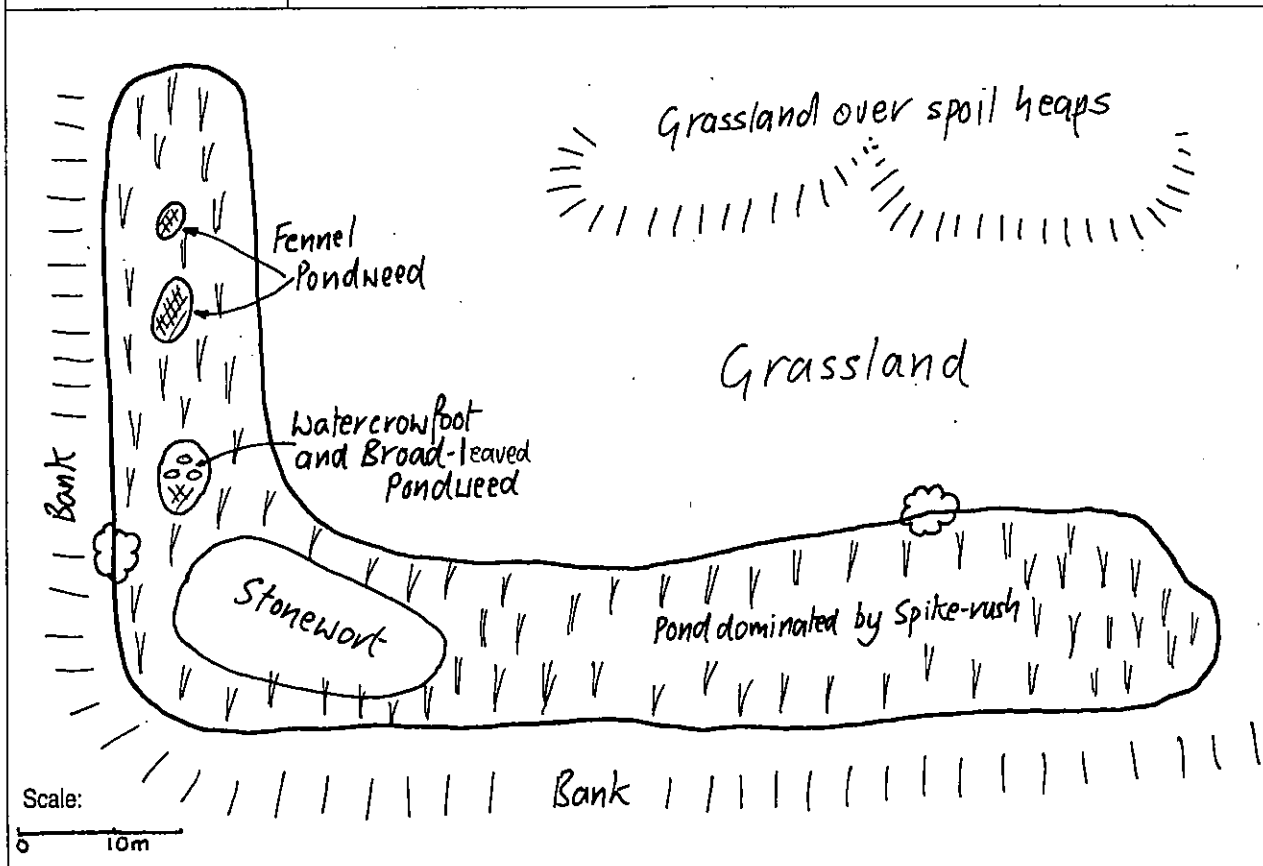 Grassland over spoil heaps
Fennel
Pondweed
Grassland
Watercrowfoot
and Broad-leaved
Pondweed
Bank
Stonewort
Pond dominated by Spike-rush
Bank
Scale:
0 10m